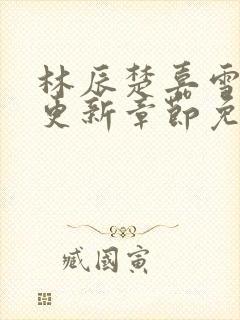 林辰楚嘉雪
更新章节免
臧国寅